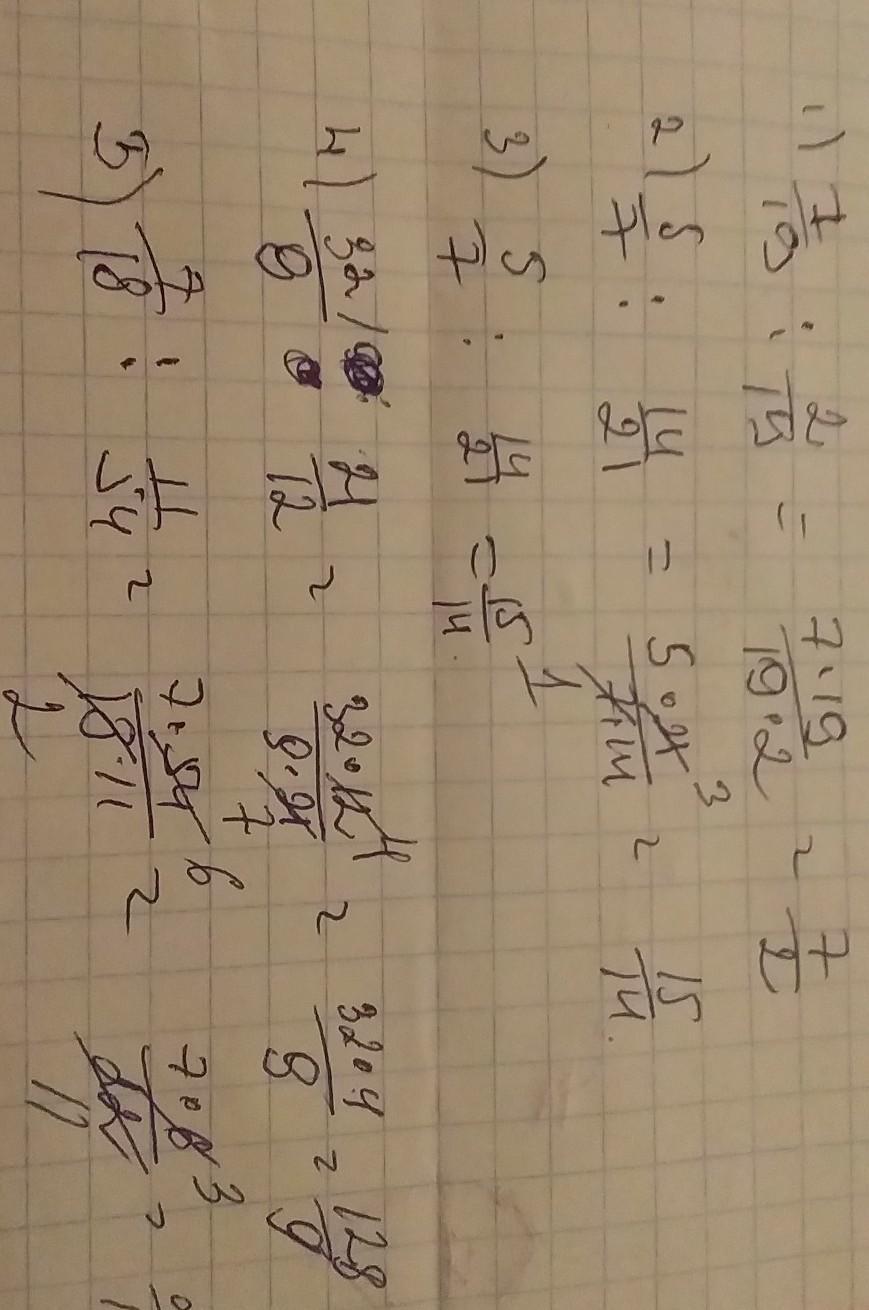 1) 7/19 : 2/19 = 7·19/19·2 = 7/2
2) 5/7 : 14/21 = 5·21/7·14 3 1 = 15/14.
3) 5/7 : 14/21 = 15/14.
4) 32/9 : 21/12 = 32·12/9·21 4 7 = 32·4/9 = 128/9
5) 7/18 : 11/54 = 7·54/18·11 6 2 = 7·6/22 3 11 =